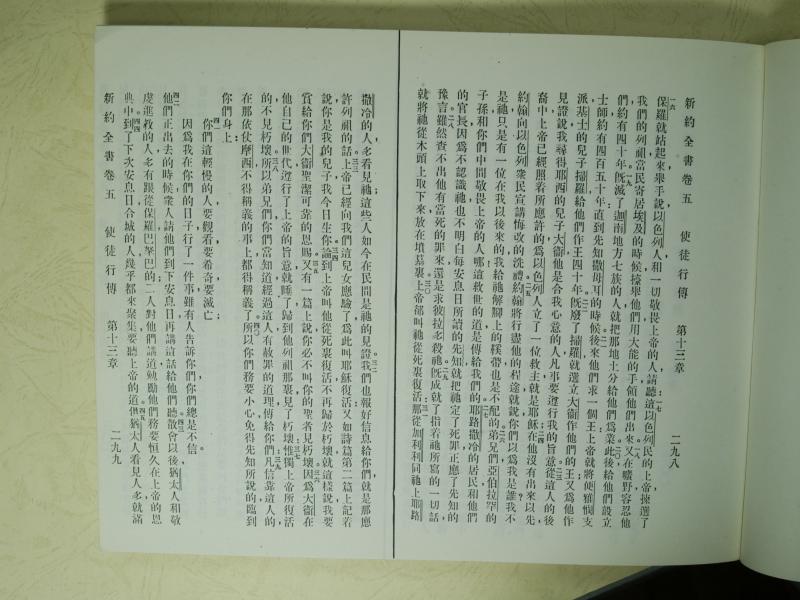 新約全書卷五 使徒行傳 第十三章 二九八
保羅就站起來舉手說以色列人和一切敬畏上帝的人請聽這以色列民的上帝揀選了
我們的列祖當民寄居埃及的時候擡舉他們用大能的手領他們出來又在曠野容忍他
們約有四十年旣滅了迦南地方七族的人就把那地土分給他們爲業此後給他們設立
士師約有四百五十年直到先知撒母耳的時候後來他們求一個王上帝就將便雅憫支
派基士的兒子掃羅給他們作王四十年旣廢了掃羅就選立大衞作他們的王又爲他作
見證說我尋得耶西的兒子大衞他是合我心意的人凡事要遵行我的旨意從這人的後
裔中上帝已經照着所應許的爲以色列人立了一位救主就是耶穌在他沒有出來以先
約翰向以色列衆民宣講悔改的洗禮約翰將行盡他的程途就說你們以爲我是誰我不
是祂只是有一位在我以後來的我給祂解腳上的鞵帶也是不配的弟兄們亞伯拉罕的
子孫和你們中間敬畏上帝的人哪這救世的道是傳給我們的耶路撒冷的居民和他們
的官長因爲不認識祂也不明白每安息日所讀的先知就把祂定了死罪正應了先知的
豫言雖然查不出他有當死的罪來還是求彼拉多殺祂旣成就了指着祂所寫的一切話
就將祂從木頭上取下來放在墳墓裏上帝卻叫祂從死裏復活那從加利利同祂上耶路
撒冷的人多看見祂這些人如今在民間是祂的見證我們也報好信息給你們就是那應
許列祖的話上帝已經向我們這兒女應驗了爲此叫耶穌復活又如詩篇第二篇上記着
說你是我的兒子我今日生你論到上帝叫他從死裏復活不再歸於朽壞就這樣說我要
賞給你們大衞聖潔可靠的恩賜又有一篇上說你必不叫你的聖者見朽壞因爲大衞在
他自己的世代遵行了上帝的旨意就睡了歸到他列祖那裏見了朽壞惟獨上帝所復活
的不見朽壞所以弟兄們你們當知道經過這人有赦罪的道理傳給你們凡信靠這人的
在那依仗摩西不得稱義的事上都得稱義了所以你們務要小心免得先知所說的臨到
你們身上
你們這輕慢的人要觀看要希奇要滅亡
因爲我在你們的日子行了一件事雖有人告訴你們你們總是不信
他們正出去的時候衆人請他們到下安息日再講這話給他們聽散會以後猶太人和敬
虔進教的人多有跟從保羅巴拏巴的二人對他們講道勉勵他們務要恒久在上帝的恩
典中到了下次安息日合城的人幾乎都來聚集要聽上帝的道但猶太人看見人多就滿
新約全書卷五 使徒行傳 第十三章 二九九